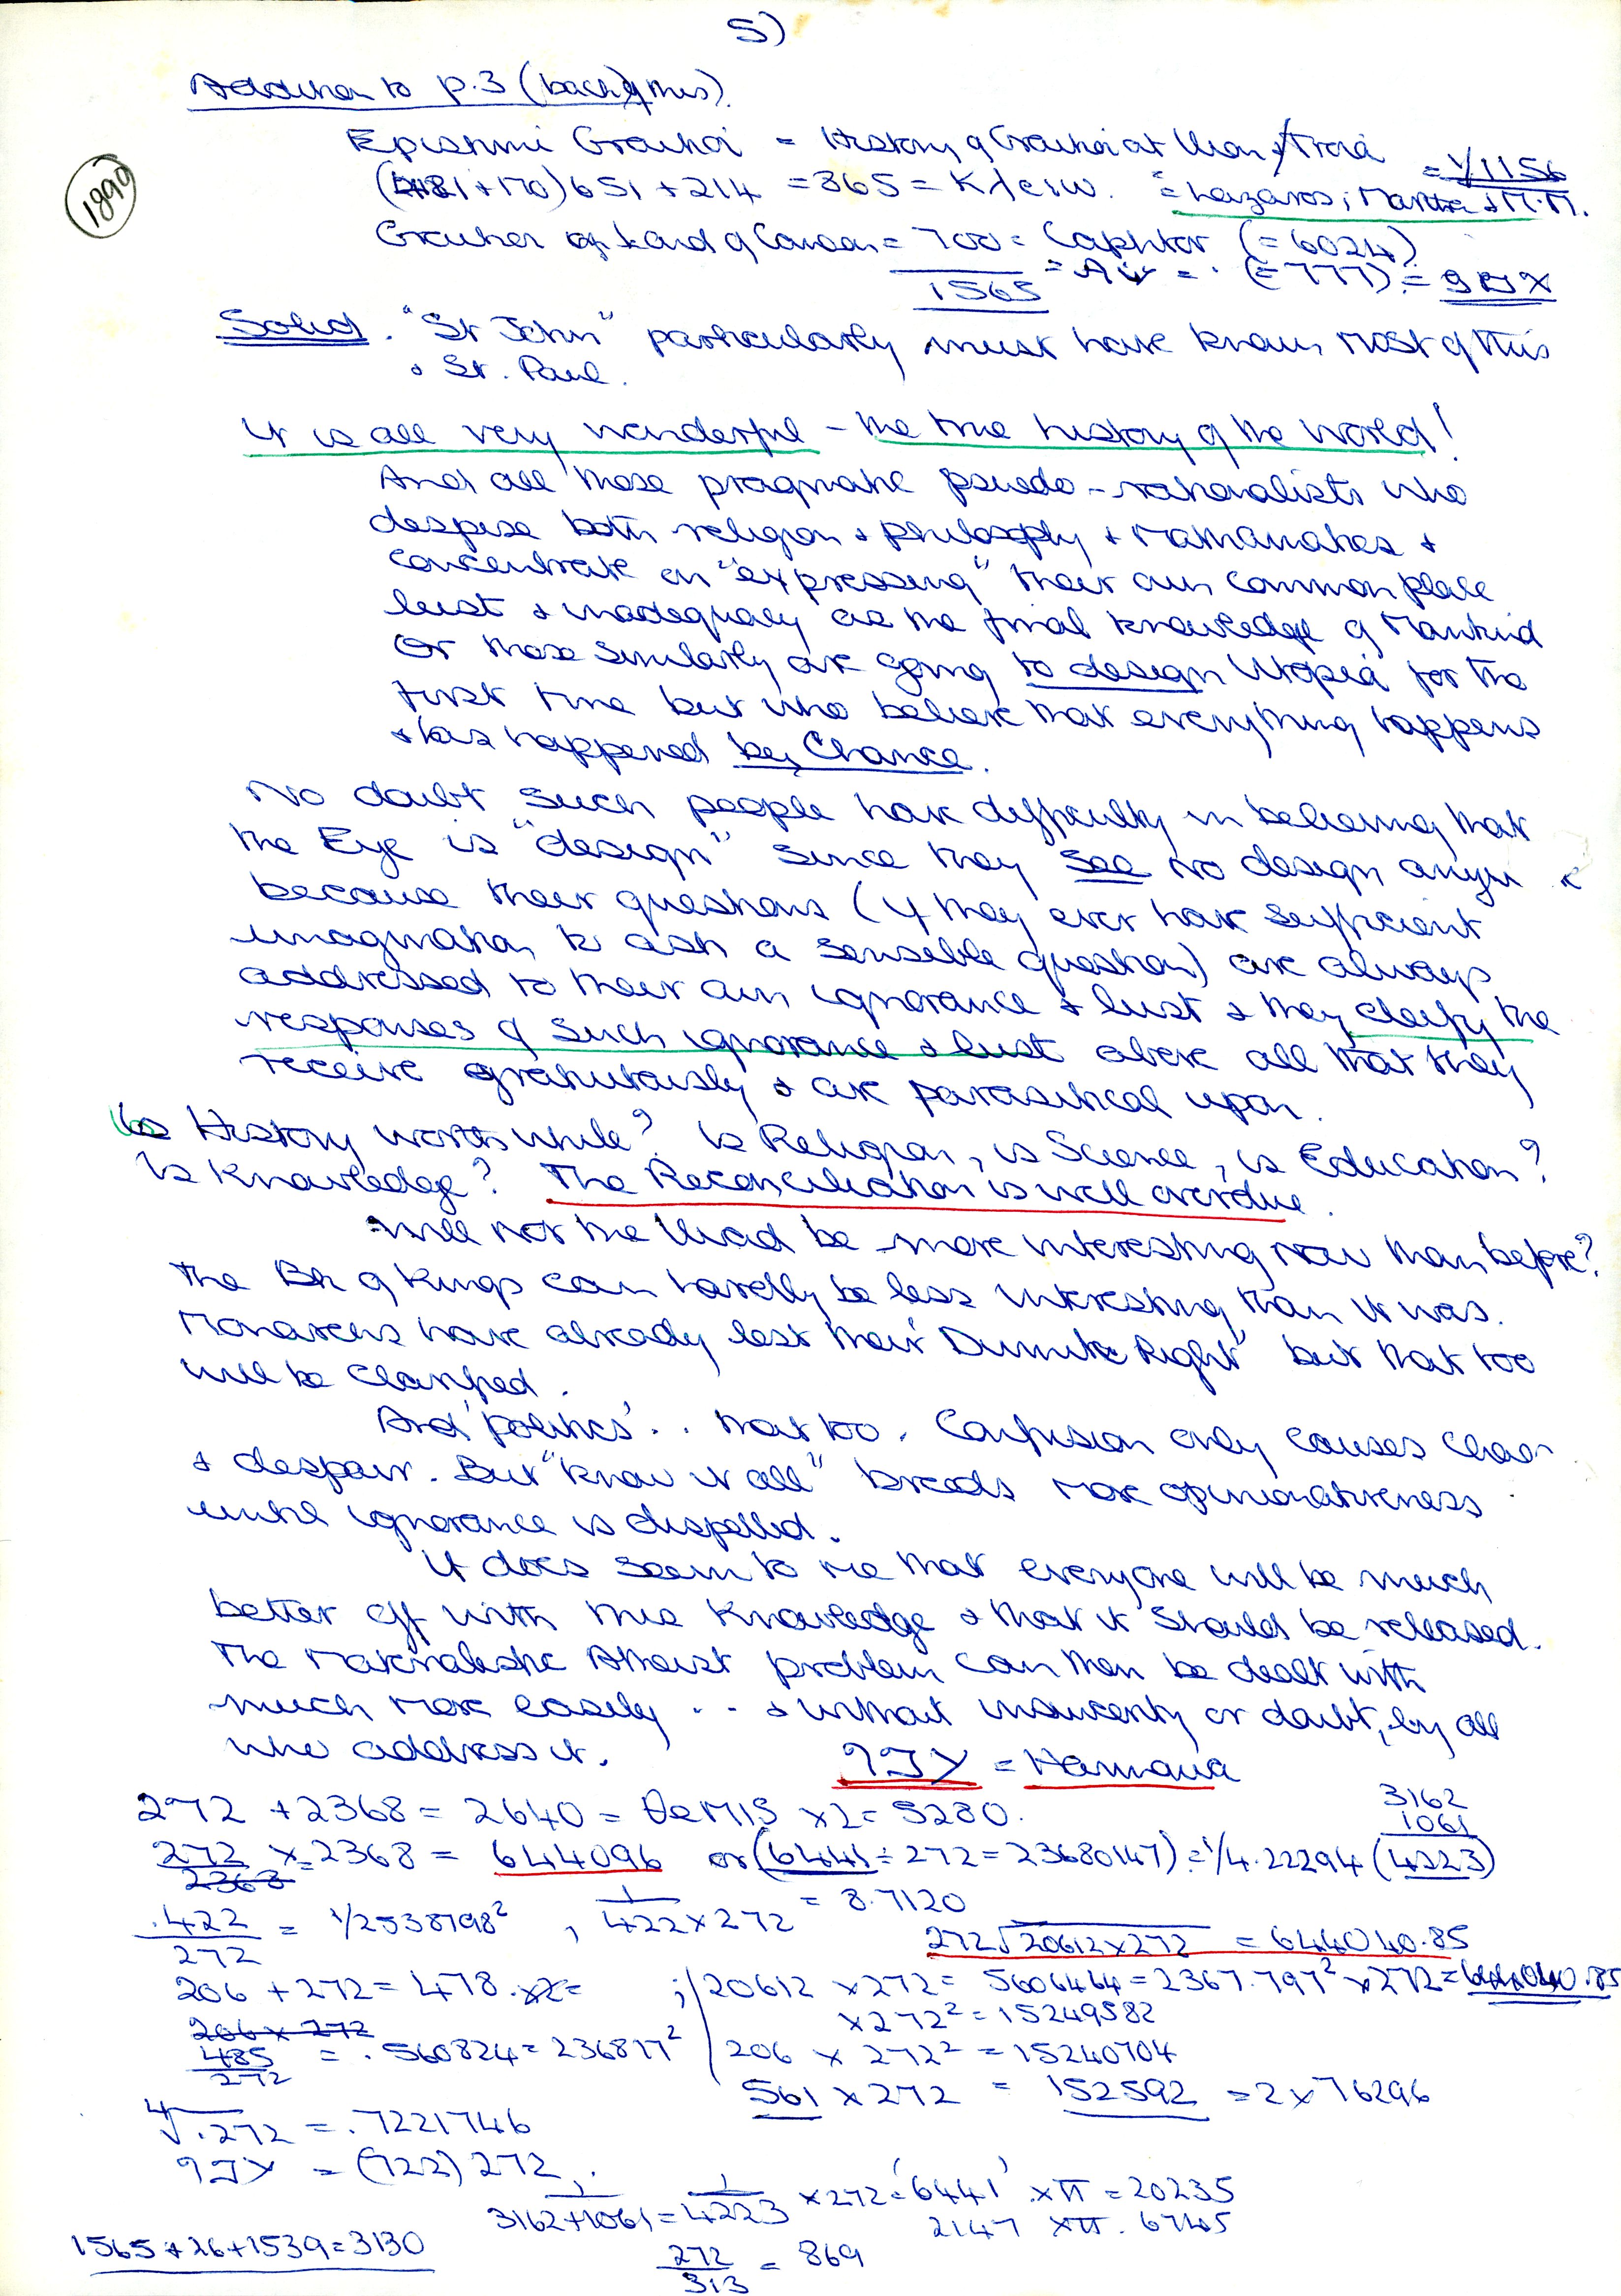 5)
Addition to p.3 (back of this).
1899
Epistimi Graikoi = History of Graikoi at Ilion / Troia = 1/1156
(481+170) 651 + 214 = 865 = = Lazaros, Martha & M.M.
Graikoi of Land of Canaan = 700 = Caphtor (= 6024)
1565 = = (= 777) =
Solid. "St John" particularly must have known most of this
& St. Paul.
It is all very wonderful – the true history of the world!
And all those pragmatic pseudo-rationalists who
despise both religion & philosophy & Mathematics &
concentrate on "expressing" their own common place
lust & inadequacy as the final knowledge of Mankind
Or those similarly are going to design Utopia for the
first time but who believe that everything happens
& has happened by Chance.
No doubt such people have difficulty in believing that
the Eye is "design" since they see no design
because their questions (if they ever have sufficient
imagination to ask a sensible question) are always
addressed to their own ignorance & lust & they deify the
responses of such ignorance & lust above all that they
receive gratuitously & are parasitical upon.
Is History worth while? Is Religion, is Science, is Education?
Is Knowledge? The Reconciliation is well overdue.
Will not the Iliad be more interesting now than before?
The Bk of Kings can hardly be less interesting than it was.
Monarchs have already lost their "Divine Right" but that too
will be clarified.
And 'politics'.. that too. Confusion only causes chaos
& despair. But "know it all" breeds more opinionativeness
until ignorance is dispelled.
It does seem to me that everyone will be much
better off with true Knowledge & that it should be released.
The Materialistic Atheist problem can then be dealt with
much more easily .. & without insincerity or doubt, by all
who address it.
= Harmonia
272 + 2368 = 2640 = θεΜΙS x2 = 5280.
3162
1061
272 x 2368 = 644096 or (6441 ÷ 272 = 23680147) = 1/4.22294 (4223)
2368
.422/272 = 1/2538798² , 1/422x272 = 8.7120
272√20612x272 = 644040.85
206 + 272 = 478. x2 = ; 20612 x 272 = 5606464 = 2367.797² x 272 = 644040.85
206 x 272
x272² = 15249582
485/272 = .560824 = 236817² 206 x 272² = 15240704
561 x 272 = 152592 = 2 x 76296
⁴√.272 = .7221746
= (722) 272
1/3162+1061 = 1/4223 x 272 = '6441' x π = 20235
2147 x π. 6745
1565 + 26 + 1539 = 3130
272/313 = 869